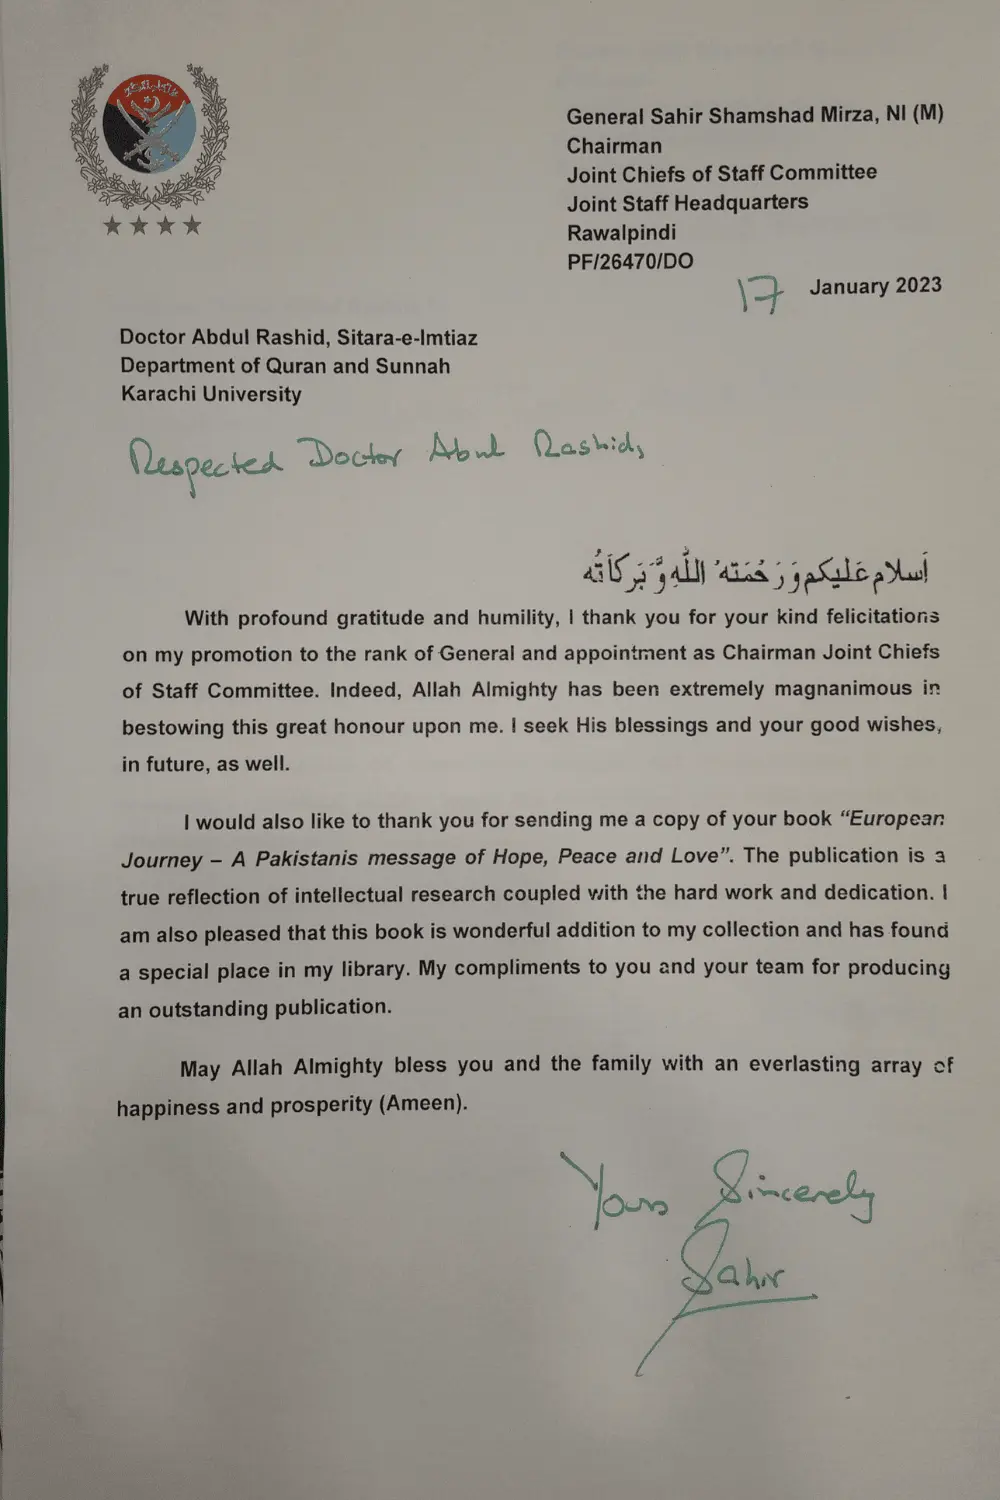 General Sahir Shamshad Mirza, NI (M)
Chairman
Joint Chiefs of Staff Committee
Joint Staff Headquarters
Rawalpindi
PF/26470/DO
17 January 2023
Doctor Abdul Rashid, Sitara-e-Imtiaz
Department of Quran and Sunnah
Karachi University
Respected Doctor Abul Rashid,
اَسلام عَليكم وَرَحُمَتهُ اللّٰهِ وَّ بَركَاَتُه
With profound gratitude and humility, I thank you for your kind felicitations
on my promotion to the rank of General and appointment as Chairman Joint Chiefs
of Staff Committee. Indeed, Allah Almighty has been extremely magnanimous in
bestowing this great honour upon me. I seek His blessings and your good wishes,
in future, as well.
I would also like to thank you for sending me a copy of your book “European
Journey – A Pakistanis message of Hope, Peace and Love”. The publication is a
true reflection of intellectual research coupled with the hard work and dedication. I
am also pleased that this book is wonderful addition to my collection and has found
a special place in my library. My compliments to you and your team for producing
an outstanding publication.
May Allah Almighty bless you and the family with an everlasting array of
happiness and prosperity (Ameen).
Yours Sincerely
Sahir